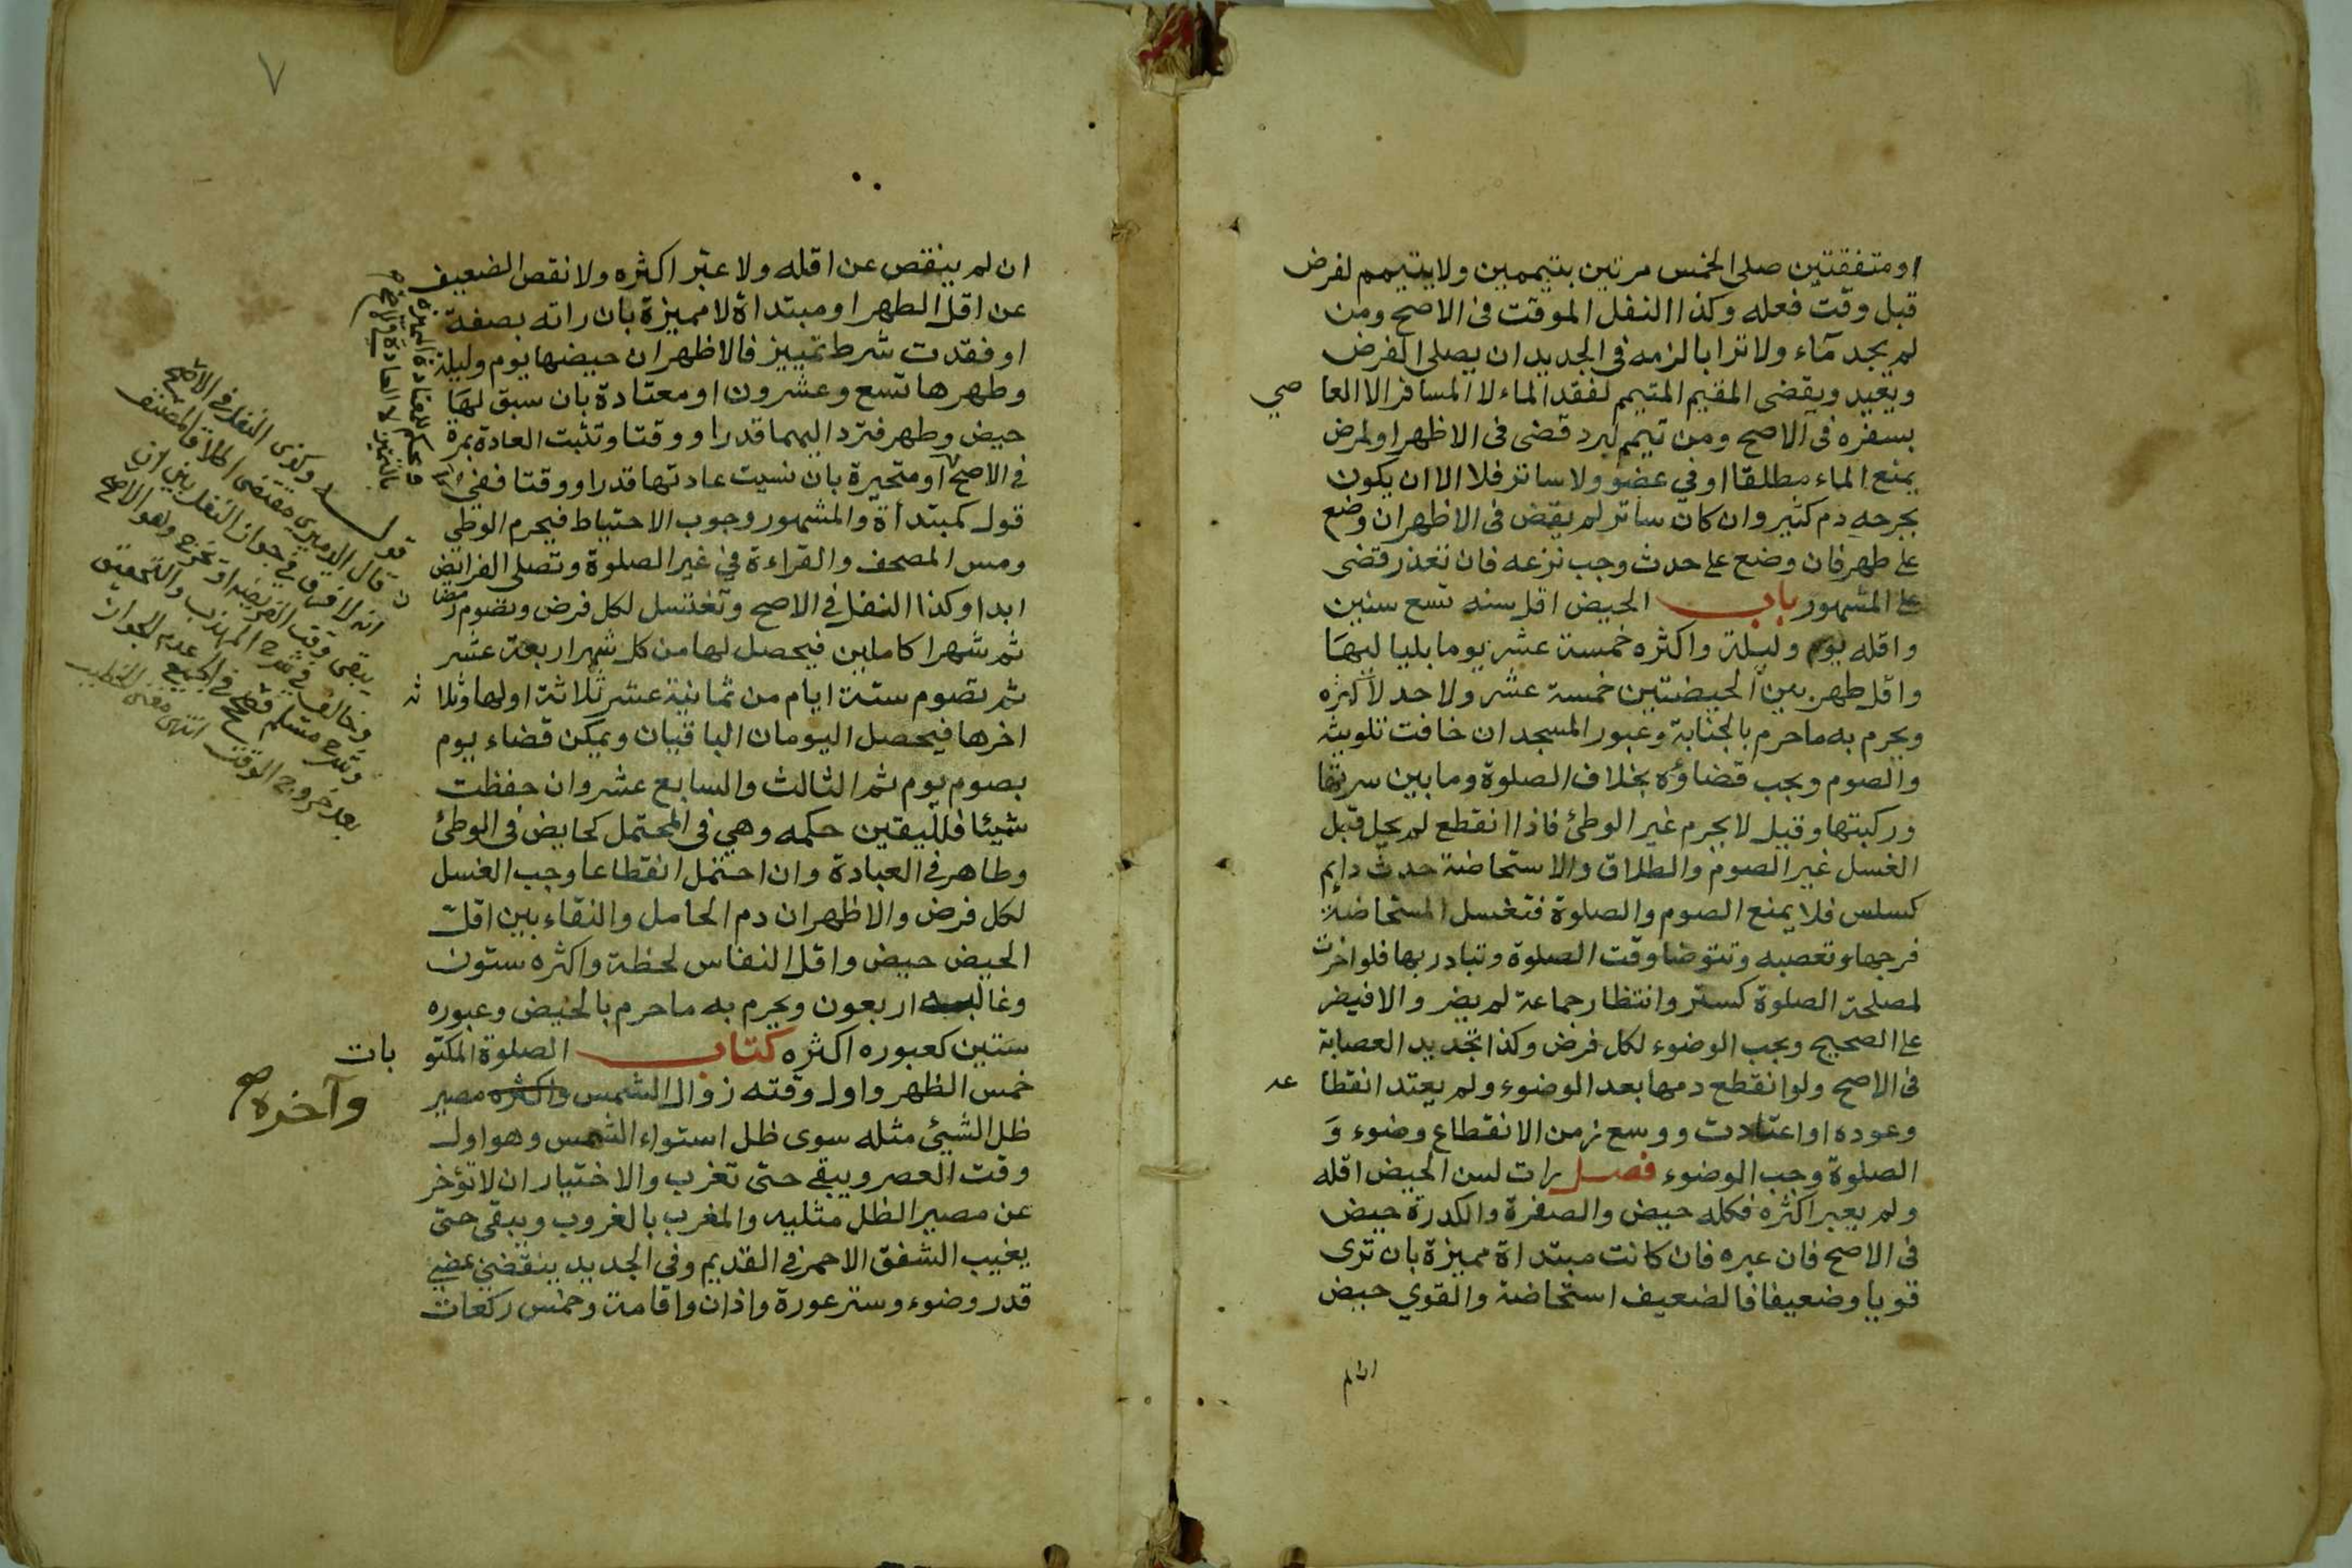 او متفقتين صلى الخمس مرتين بتيممين ولا يتيمم لفرض
قبل وقت فعله وكذا النفل الموقت فى الاصح ومن
لم يجد مآء ولا ترابا لزمه فى الجديد ان يصلى الفرض
ويعيد ويقضى المقيم المتيمم لفقد الماء لا المسافر الا العا صي
بسفره فى الاصح ومن تيمم لبرد قضى فى الاظهر او لمرض
يمنع الماء مطلقا او في عضو ولا ساتر فلا الا ان يكون
بجرحه دم كثير وان كان ساتر لم يقض فى الاظهر ان وضع
على طهر فان وضع على حدث وجب نزعه فان تعذر قضى
على المشهور باب الحيض اقل سنه تسع سنين
واقله يوم وليلة واكثره خمسة عشر يوما بليا ليهَا
واقل طهر بين الحيضتين خمسة عشر ولا حد لأكثره
ويحرم به ما حرم بالجنابة وعبور المسجد ان خافت تلويثه
والصوم ويجب قضاؤه بخلاف الصلوة وما بين سرتها
وركبتها وقيل لا يحرم غير الوطئ فاذا انقطع لم يحل قبل
الغسل غير الصوم والطلاق والاستحاضة حدث دايم
كسلس فلا يمنع الصوم والصلوة فتغسل المستحاضة
فرجها وتعصبه وتتوضا وقت الصلوة وتبادر بها فلو اخرت
لمصلحة الصلوة كستر وانتظار جماعة لم يضر والا فيضر
على الصحيح ويجب الوضوء لكل فرض وكذا تجديد العصابة
فى الاصح ولو انقطع دمها بعد الوضوء ولم يعتد انقطا عه
وعوده او اعتادت ووسع زمن الانقطاع وضوء وَ
الصلوة وجب الوضوء فصل رات لسن الحيض اقله
ولم يعبر اكثره فكله حيض والصفرة والكدرة حيض
فى الاصح فان عبره فان كانت مبتداة مميزة بان ترى
قويا وضعيفا فالضعيف استحاضة والقوي حيض
ان لم
٧
ان لم ينقص عن اقله ولا عبر اكثره ولا نقص الضعيف
عن اقل الطهر او مبتداة لا مميزة بان راته بصفة
او فقدت شرط تمييز فالاظهر ان حيضها يوم وليلة
وطهرها تسع وعشرون او معتادة بان سبق لهَا
حيض وطهر فترد اليهما قدرا ووقتا وتثبت العادة بمرة
في الاصح او متحيرة بان نسيت عادتها قدرا ووقتا ففي
قول كمبتدأة والمشهور وجوب الاحتياط فيحرم الوطي
ومس المصحف والقراءة في غير الصلوة وتصلى الفرائض
ابدا وكذا النفل في الاصح وتغتسل لكل فرض وتصوم رمضان
ثم شهرا كاملين فيحصل لها من كل شهر اربعة عشر
ثم تصوم ستة ايام من ثمانية عشر ثلاثة اولها وثلا ثه
اخرها فيحصل اليومان الباقيان ويمكن قضاء يوم
بصوم يوم ثم الثالث والسابع عشر وان حفظت
شيئا فلليقين حكمه وهي فى المحتمل كحايض فى الوطئ
وطاهر فى العبادة وان احتمل انقطاعا وجب الغسل
لكل فرض والاظهر ان دم الحامل والنقاء بين اقل
الحيض حيض واقل النفاس لحظة واكثره ستون
وغالبه اربعون ويحرم به ما حرم بالحيض وعبوره
ستين كعبوره اكثره كتاب الصلوة المكتو بات
خمس الظهر واول وقته زوال الشمس واكثره مصير
وآخره صح
ظل الشيئ مثله سوى ظل استواء الشمس وهو اول
وقت العصر ويبقى حتى تغرب والاختيار ان لا تؤخر
عن مصير الظل مثليه والمغرب بالغروب ويبقى حتى
يغيب الشفق الاحمر في القديم وفي الجديد ينقضي بمضي
قدر وضوء وستر عورة واذان واقامة وخمس ركعات
ويحكم للمعتادة المميزة
بالتمييز لا العادة في الاصح
قوله وكذى النفل في الاصح
قال الدميري مقتضى اطلاق المصنف
انه لا فرق في جواز النفل بين ان
يبقى وقت الفريضة او يخرج وهو الاصح
وخالف في شرح المهذب والتحقيق
وشرح مسلم فصحح في الجميع عدم الجواز
بعد خروج الوقت انتهى مغنى الخطيب